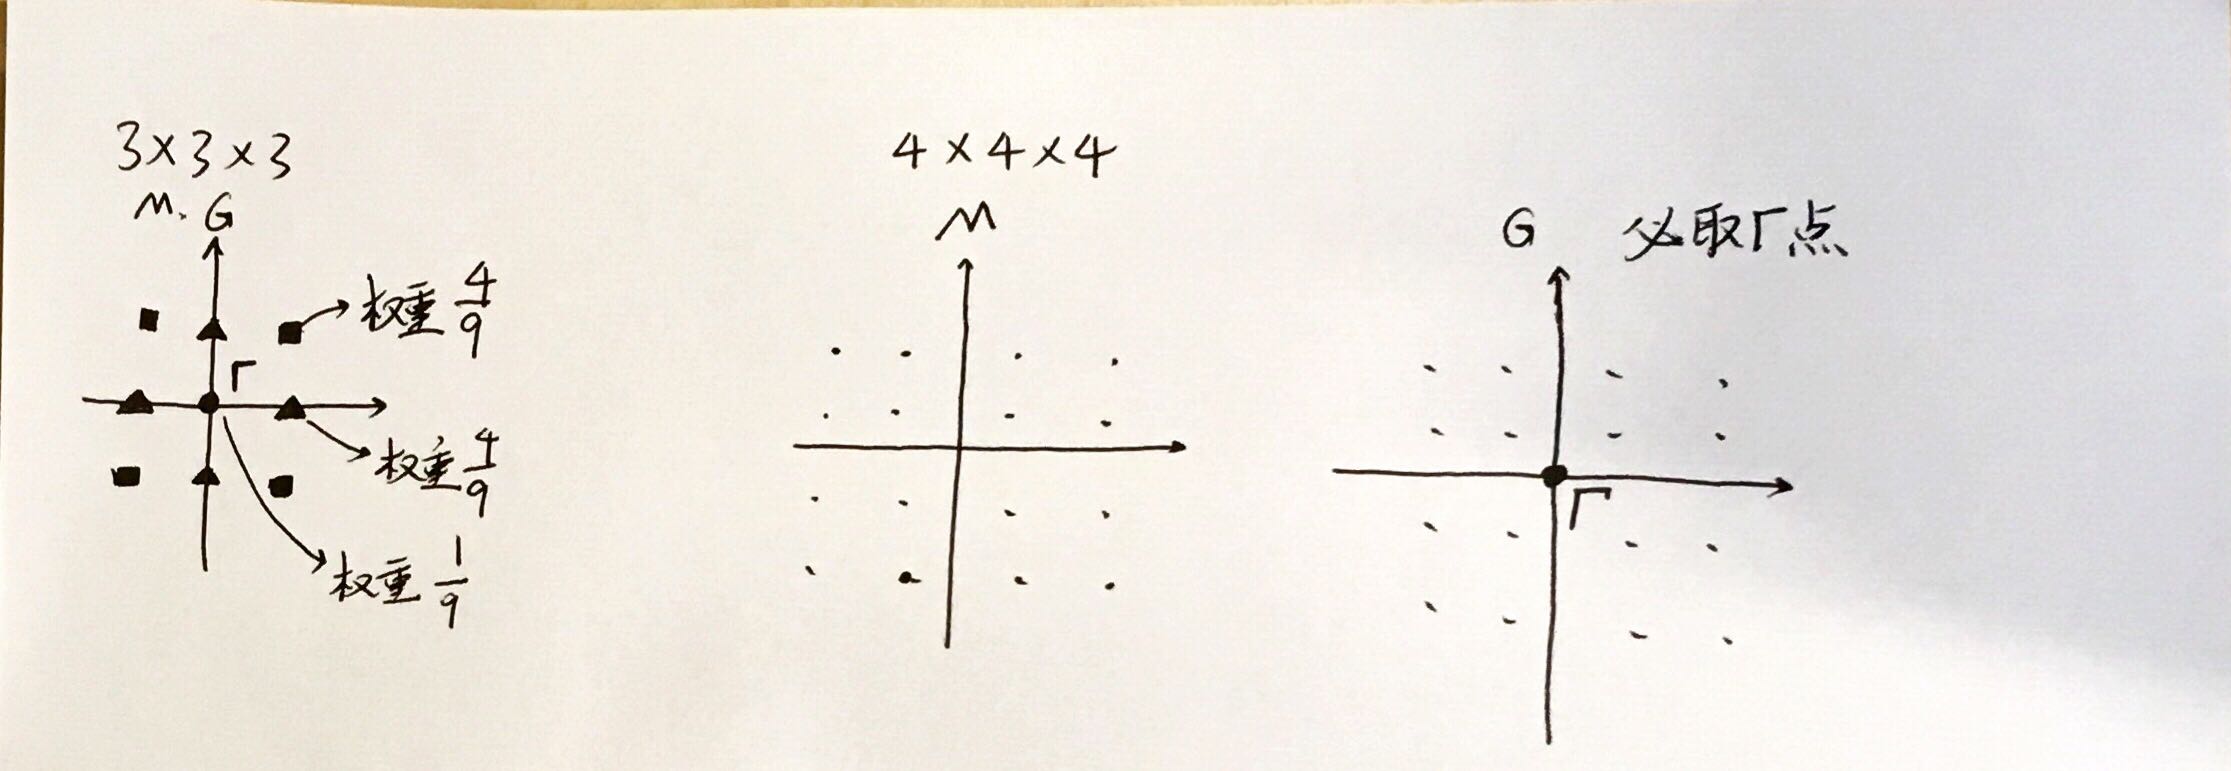 3×3×3
M. G
权重 4/9
Γ
权重 4/9
权重 1/9
4×4×4
M
G 必取Γ点
Γ